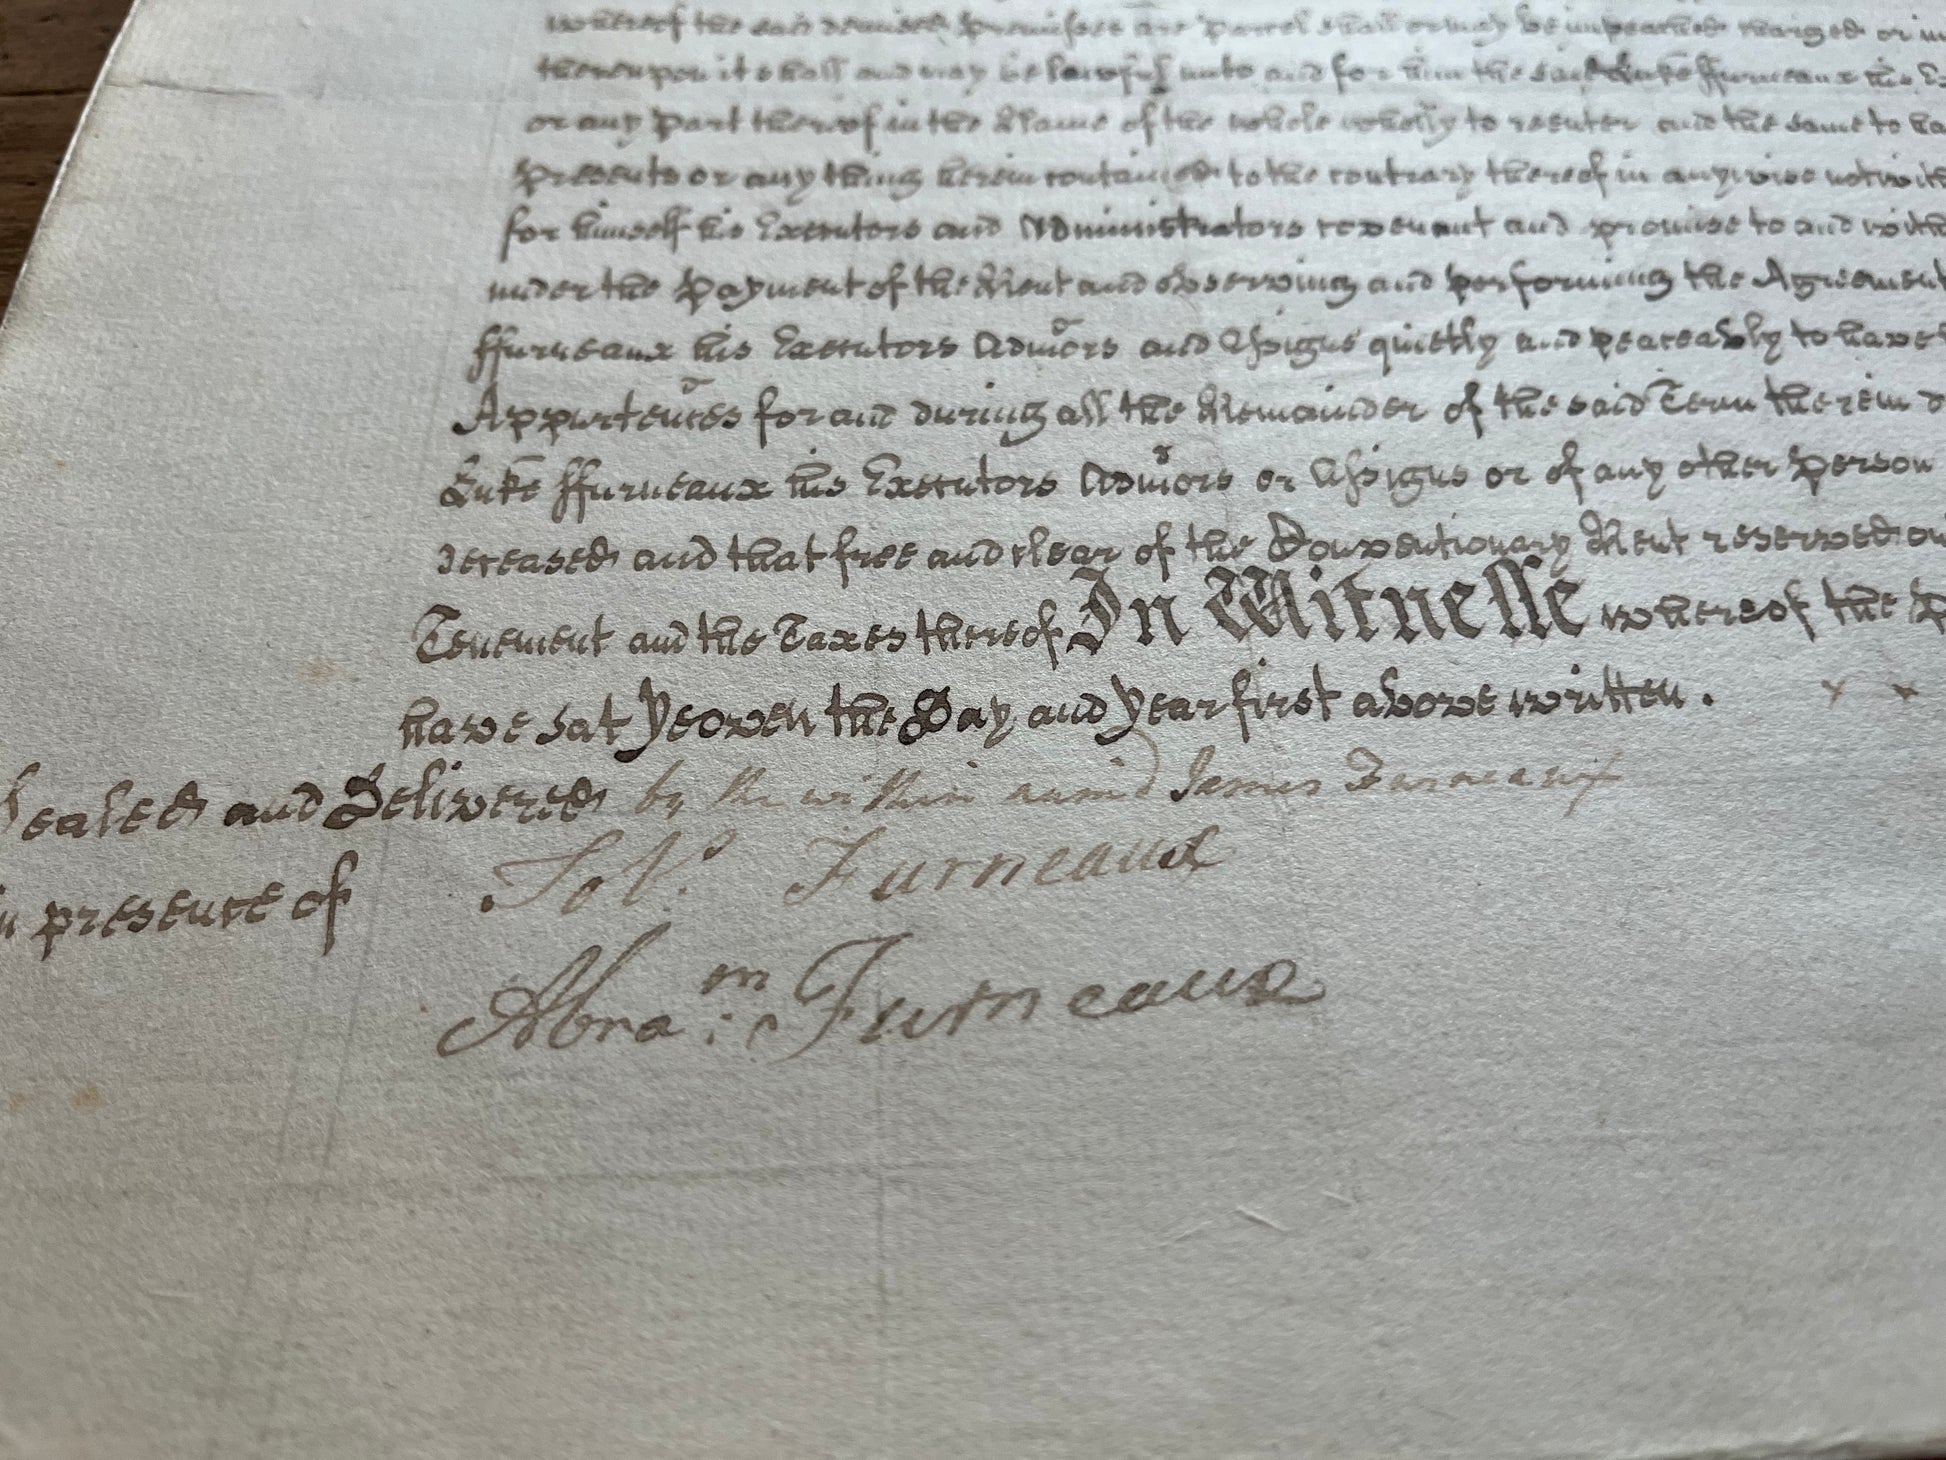 whereof the said demised premisses are parcel shall or may be impeached charged or
thereupon it shall and may be lawfull unto and for him the said Luke ffurneaux his
or any part thereof in the Name of the whole wholly to reenter and the same to
presents or any thing herein contained to the contrary thereof in anywise
for himself his Executors and Administrators covenant and promise to and with
under the payment of the Rent and observing and performing the Agreement
ffurneaux his Executors Admors and Assigns quietly and peaceably to have
Appurtences for and during all the Remainder of the said Term therein
Luke ffurneaux his Executors Admors or Assigns or of any other person
deceased and that free and clear of the Conventionary Rent reserved
Tenement and the Taxes thereof In Witnesse whereof the
have sat yeoven the Day and year first above written.
Sealed and Delivered by the within named James Furneaux
presence of
Furneaux
Abram: Furneaux